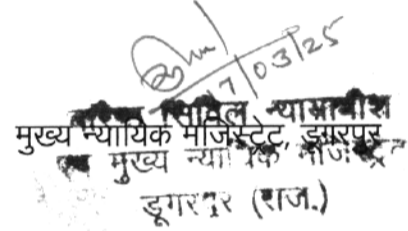 17/03/25
सिविल न्यायाधीश
मुख्य न्यायिक मजिस्ट्रेट, डूंगरपुर
मुख्य न्यायिक मजिस्ट्रेट
डूंगरपुर (राज.)